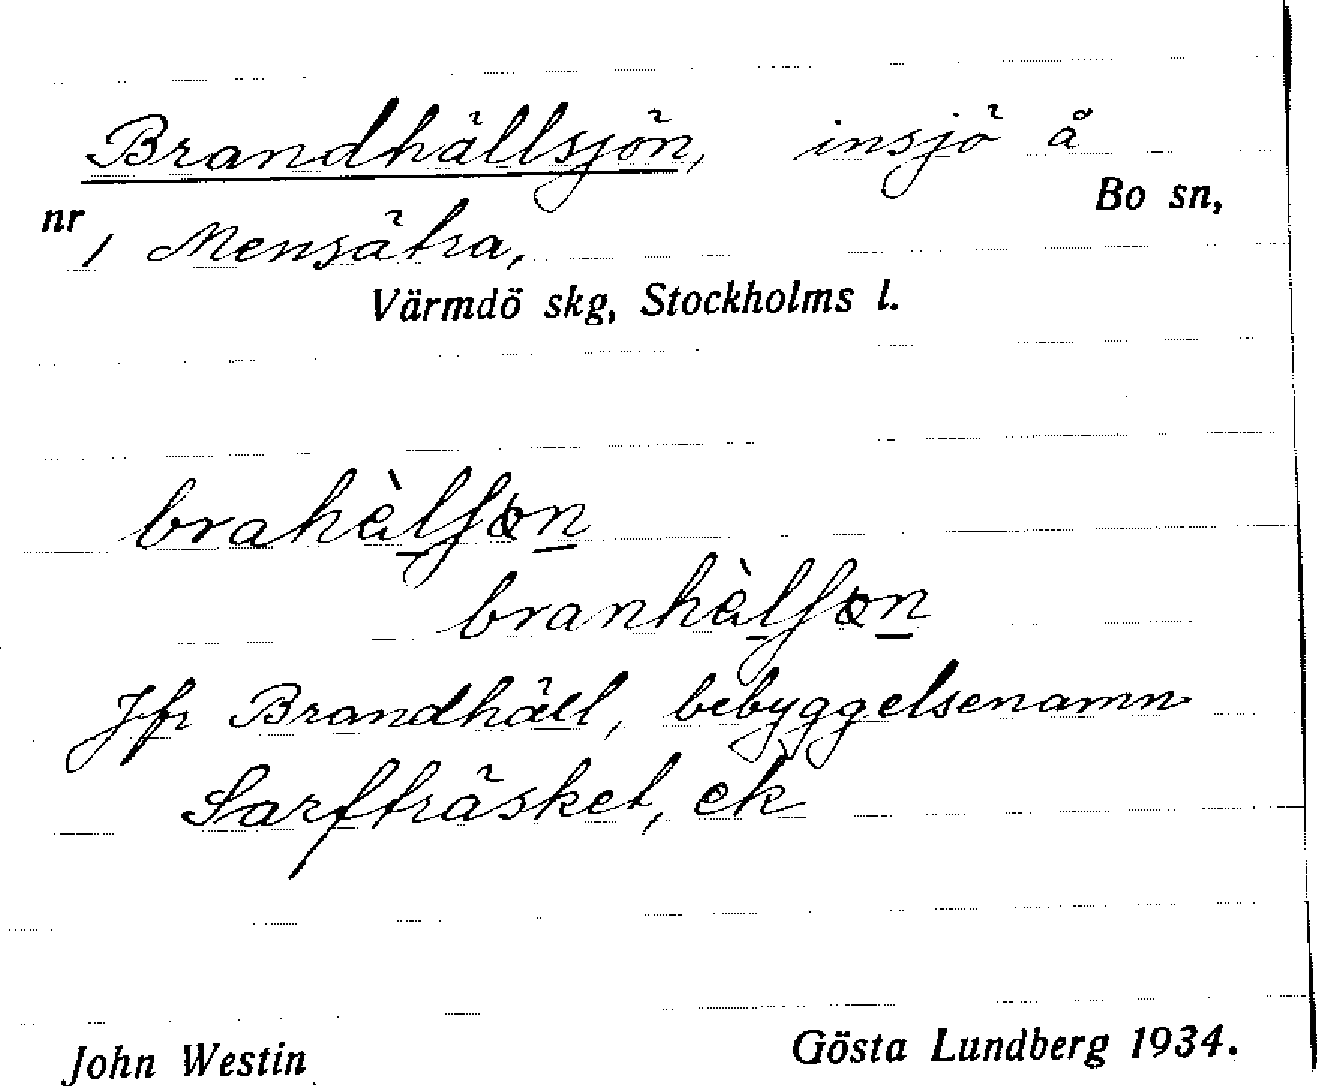 Brandhällsjön, insjö å
Bo sn,
nr 1 Mensätra,
Värmdö skg, Stockholms l.
brahὲlʃɵn
branhὲlʃɵn
Jfr Brandhäll, bebyggelsenamn
Sarfträsket, ek
John Westin
Gösta Lundberg 1934.